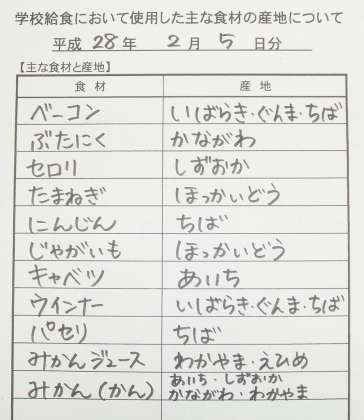 学校給食において使用した主な食材の産地について
平成 28 年 2 月 5 日分
【主な食材と産地】
食材 産地
ベーコン いばらき・ぐんま・ちば
ぶたにく かながわ
セロリ しずおか
たまねぎ ほっかいどう
にんじん ちば
じゃがいも ほっかいどう
キャベツ あいち
ウインナー いばらき・ぐんま・ちば
パセリ ちば
みかんジュース わかやま・えひめ
みかん(かん) あいち・しずおか
かながわ・わかやま